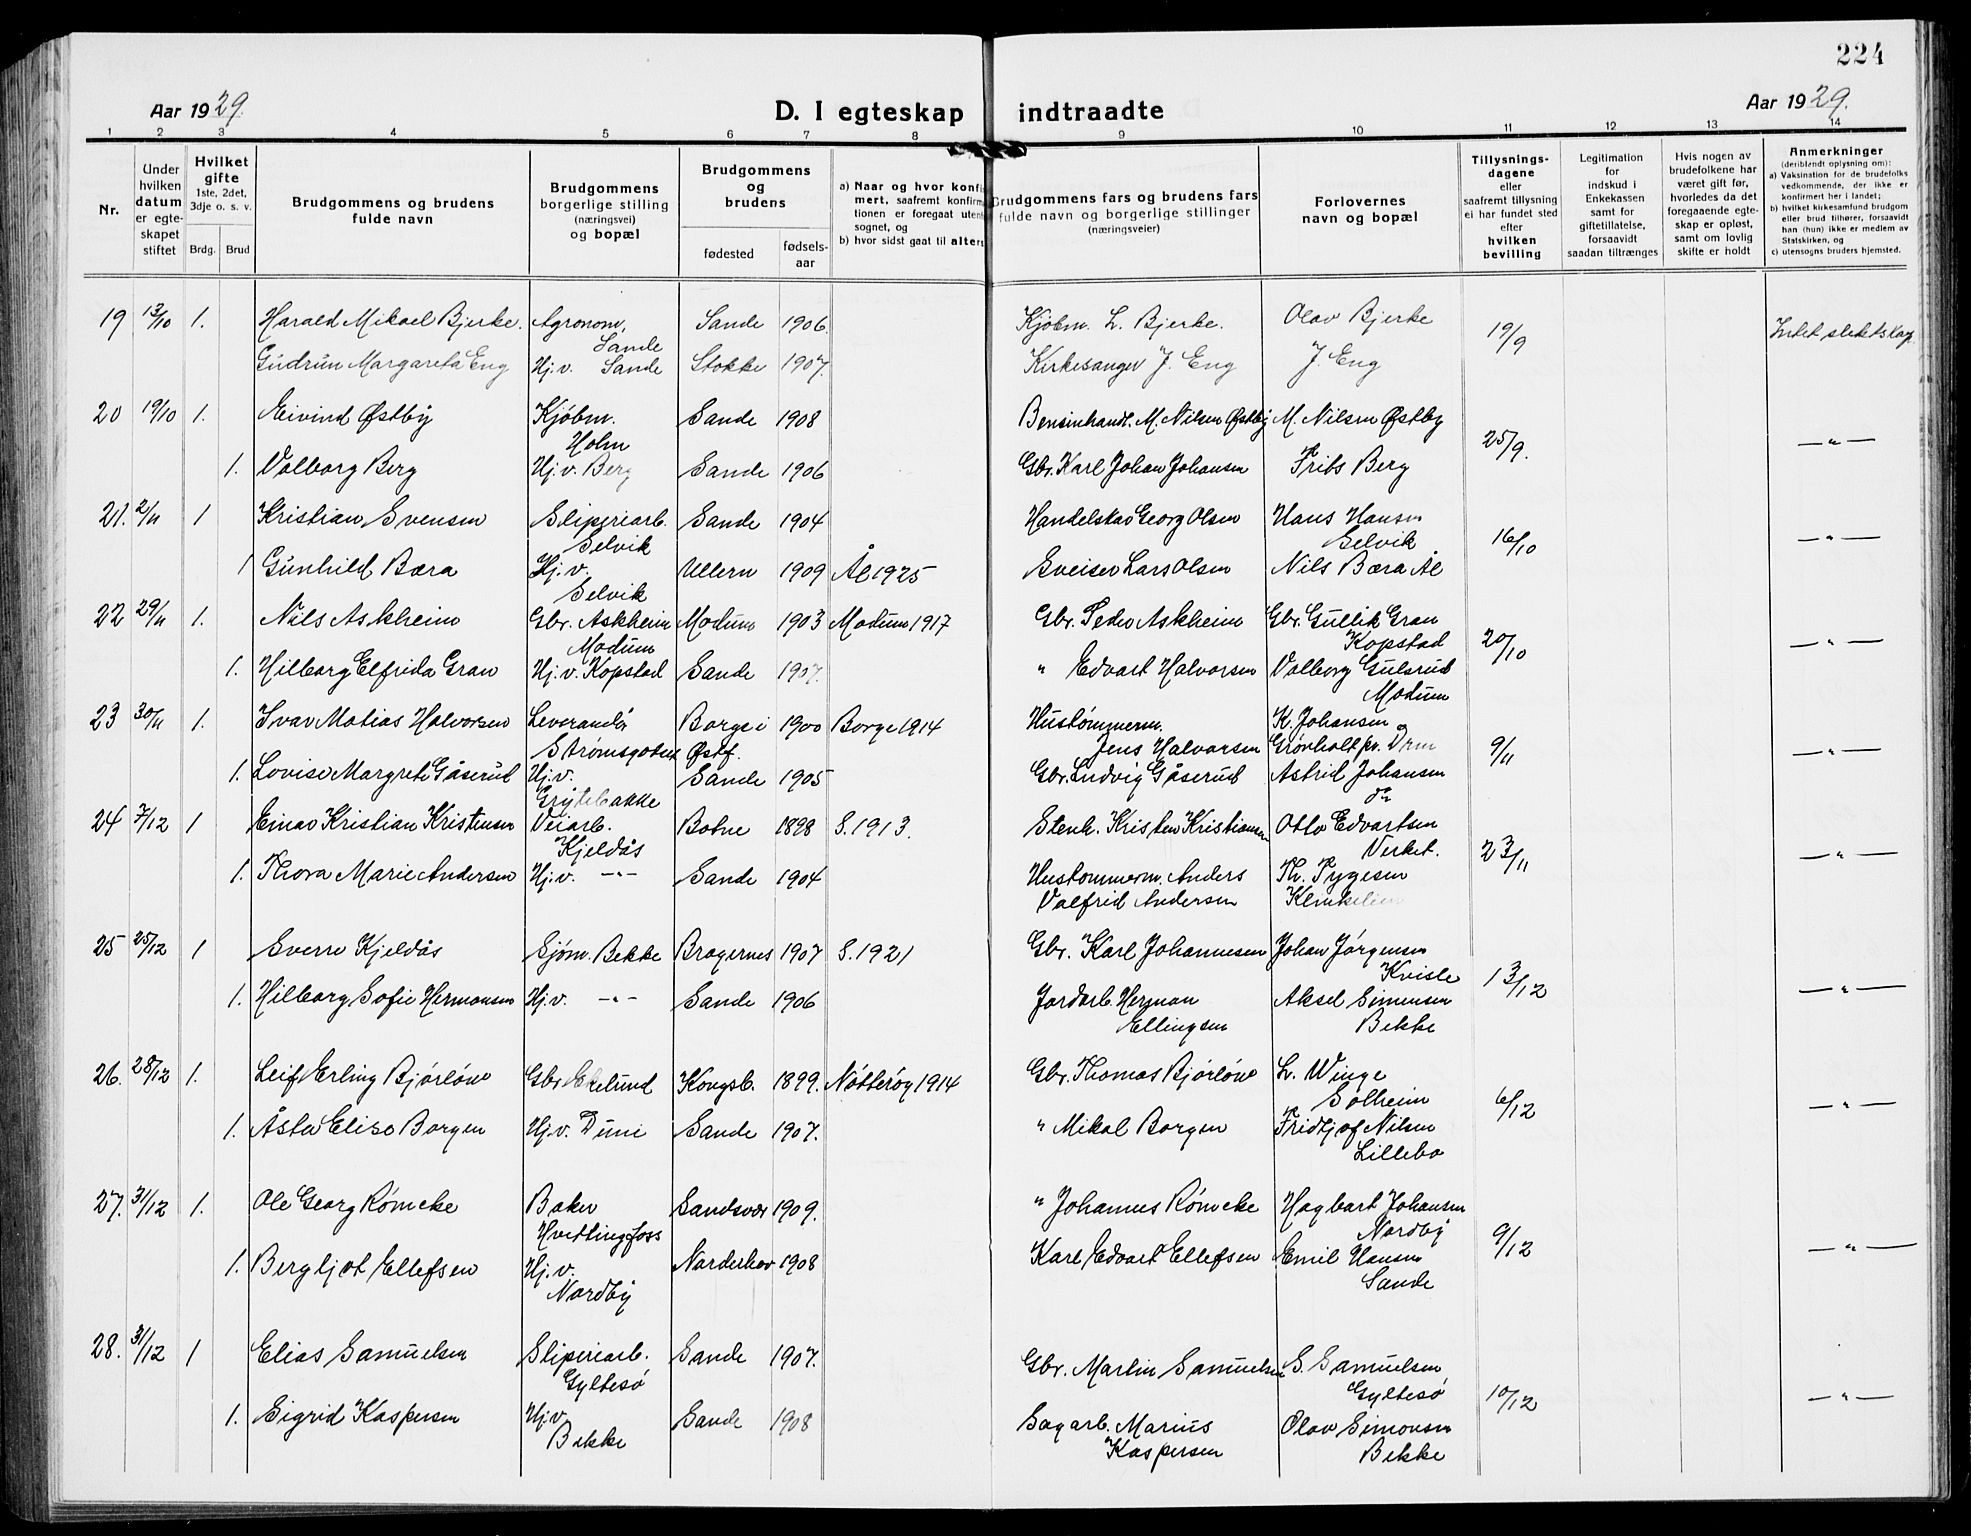 224
Aar 1929.
D. I egteskap indtraadte
Aar 1929.
1 2 3 4 5 6 7 8 9 10 11 12 13 14
Nr.
Under hvilken datum er egteskapet stiftet
Hvilket gifte
1ste, 2det, 3dje o. s. v.
Brdg. Brud
Brudgommens og brudens fulde navn
Brudgommens borgerlige stilling (næringsvei) og bopæl
Brudgommens og brudens
fødested
fødselsaar
a) Naar og hvor konfi
mert, saafremt konfirm
tionen er foregaat uten
sognet, og
b) hvor sidst gaat til alters
Brudgommens fars og brudens fars
fulde navn og borgerlige stillinger
(næringsveier)
Forlovernes
navn og bopæl
Tillysnings-
dagene
eller
saafremt tillysning
ei har fundet sted
efter
hvilken
bevilling
Legitimation
for
indskud i
Enkekassen
samt for
giftetillatelse,
forsaavidt
saadan tiltrænges
Hvis nogen av
brudefolkene har
været gift før,
hvorledes da det
foregaaende egte-
skap er opløst,
samt om lovlig
skifte er holdt
Anmerkninger
(deriblandt oplysning om):
a) Vaksination for de brudefolks
vedkommende, der ikke er
konfirmert her i landet;
b) hvilket kirkesamfund brudgom
eller brud tilhører, forsaavidt
han (hun) ikke er medlem av
Statskirken, og
c) utensogns bruders hjemsted.
19 13/10 1. Harald Mikael Bjerke. Agronom, Sande Sande 1906. Kjøbm. L. Bjerke. Olav Bjerke 19/9 Intet slektskap.
Gudrun Margareta Eng Hj.v. Sande Stokke 1907. Kirkesanger J. Eng J. Eng
20 19/10 1. Eivind Østby Kjøbm. Holm Sande 1908 Bensinhandl. M. Nilsen Østby M. Nilsen Østby 25/9. —"—
1. Valborg Berg Hj.v. Berg Sande 1906 Gbr. Karl Johan Johansen Frits Berg
21. 2/11 1 Kristian Svensen Sliperiarb. Selvik Sande 1904 Handelskar Georg Olsen Hans Hansen Selvik 16/10 —"—
1 Gunhild Bæra Hj.v. Selvik Ullern 1909 Ål 1925 Sveiser Lars Olsen Nils Bæra Ål
22 29/11 1. Nils Askheim Gbr. Askheim Modum Modum 1903 Modum 1917 Gbr. Peder Askheim Gbr. Gullik Gran Kopstad 20/10 —"—
1. Hilborg Elfrida Gran Hj.v. Kopstad Sande 1907. " Edvart Halvorsen Valborg Gulsrud Modum
23 30/11 1. Ivar Matias Halvorsen Leverandør Strømsgoten Borge i Østf. 1900 Borge 1914 Hustømmerm. Jens Halvorsen K. Johansen Grønholt pr. Drm 9/11 —"—
1. Lovise Margrete Gåserud Hj.v. Grytebakke Sande 1905 Gbr. Ludvig Gåserud Astrid Johansen
24 7/12 1 Einar Kristian Kristensen Veiarb. Kjeldås Botne 1898 S. 1913. Stenh. Kristen Kristiansen Otto Edvartsen Verket. 23/11 —"—
1. Thora Marie Andersen Hj.v. —"— Sande 1904 Hustommerm. Anders Valfrid Andersen Th. Tygesen
25 25/12 1 Sverre Kjeldås Sjøm. Bekke Bragernes 1907 S. 1921 Gbr. Karl Johannesen Johan Jørgensen Kvisle 13/12 —"—
1. Hilborg Sofie Hermansen Hj.v. —"— Sande 1906 Jordarb. Herman Ellingsen Aksel Simensen Bekke
26. 28/12 1. Leif Erling Bjørløw Gbr. Ekelund Kongsb. 1899. Nøtterøy 1914 Gbr. Thomas Bjørløw L. Winge Solheim 6/12 —"—
1. Åsta Elise Borgen Hj.v. Duni Sande 1907. " Mikal Borgen Fridtjof Nilsen Lillebo
27. 31/12 1. Ole Georg Rømcke Baker Hvittingfoss Sandsvær 1909. " Johannes Rømcke Hagbart Johansen Nordby 9/12 —"—
1. Bergljot Ellefsen Hj.v. Nordby Norderhov 1908 Karl Edvart Ellefsen Emil Hansen Sande
28. 31/12 1 Elias Samuelsen Sliperiarb. Gyltesø Sande 1907. Gbr. Martin Samuelsen S. Samuelsen Gyltesø 10/12 —"—
1. Sigrid Kaspersen Hj.v. Bekke Sande 1908 Sagarb. Marius Kaspersen Olav Simonsen Bekke